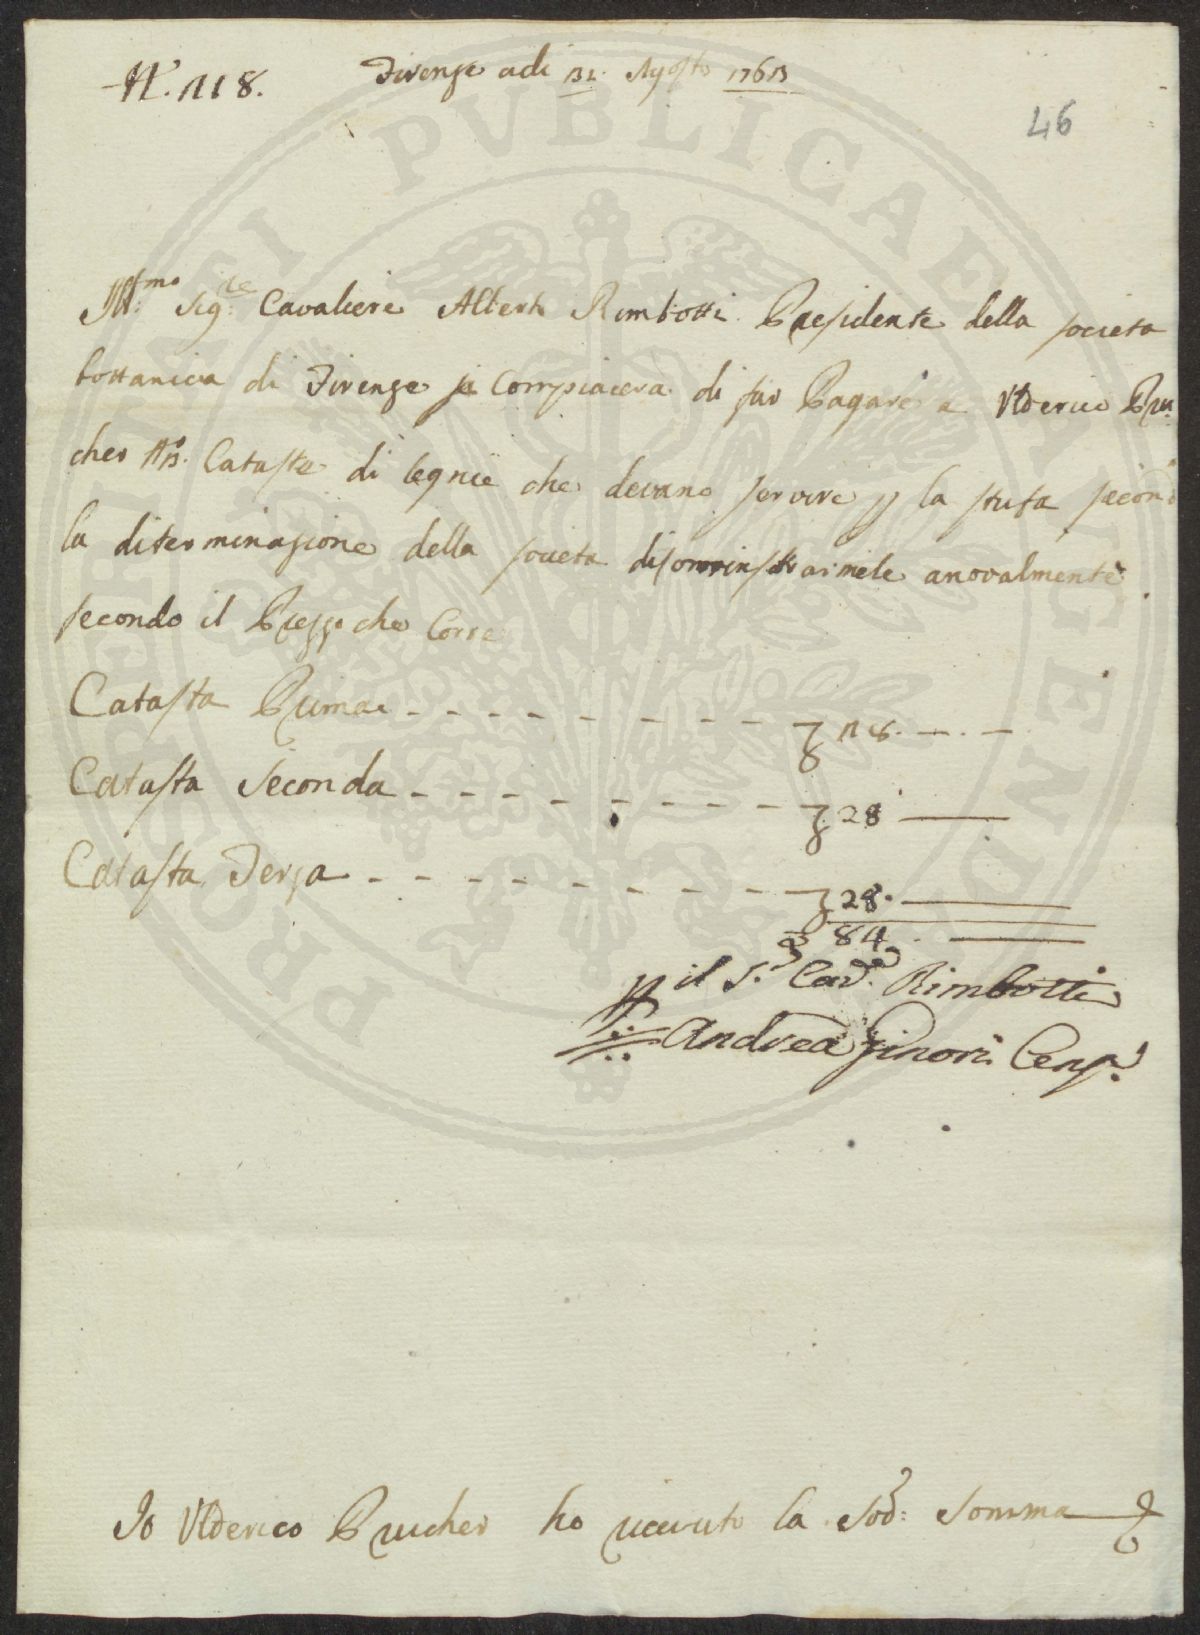 N. 118.
Firenze adi 31. Agosto 1763
46
Ill.mo Sig.re Cavaliere Alberto Rimbotti Presidente della societa
bottanicia di Firenze se Compiacera di far Pagare a Ulderico Pru
cher N.3. Cataste di legnie che devano servire p la stufa second
la diterminazione della societa di somrinistrarmele anovalmente
secondo il Prezzo che Corre
Catasta Prima - - - - - - - - - 28. - . -
Catasta Seconda - - - - - - - - - 28 —
Catasta Terza - - - - - - - - - 28. —
84. —
p il S.r Cav.e Rimbotti
Andrea Ginori Cens.e
Io Ulderico Prucher ho ricevuto la Sod: Somma